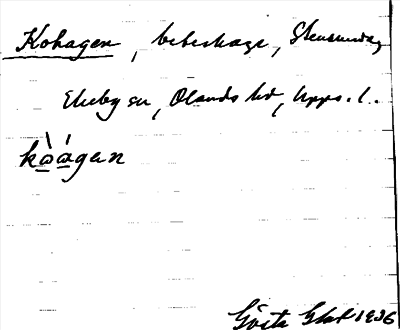 Kohagen, beteshage, Stensunda,
Ekeby sn, Olands hd, Upps. l.
kòágen
Gösta Glad 1936